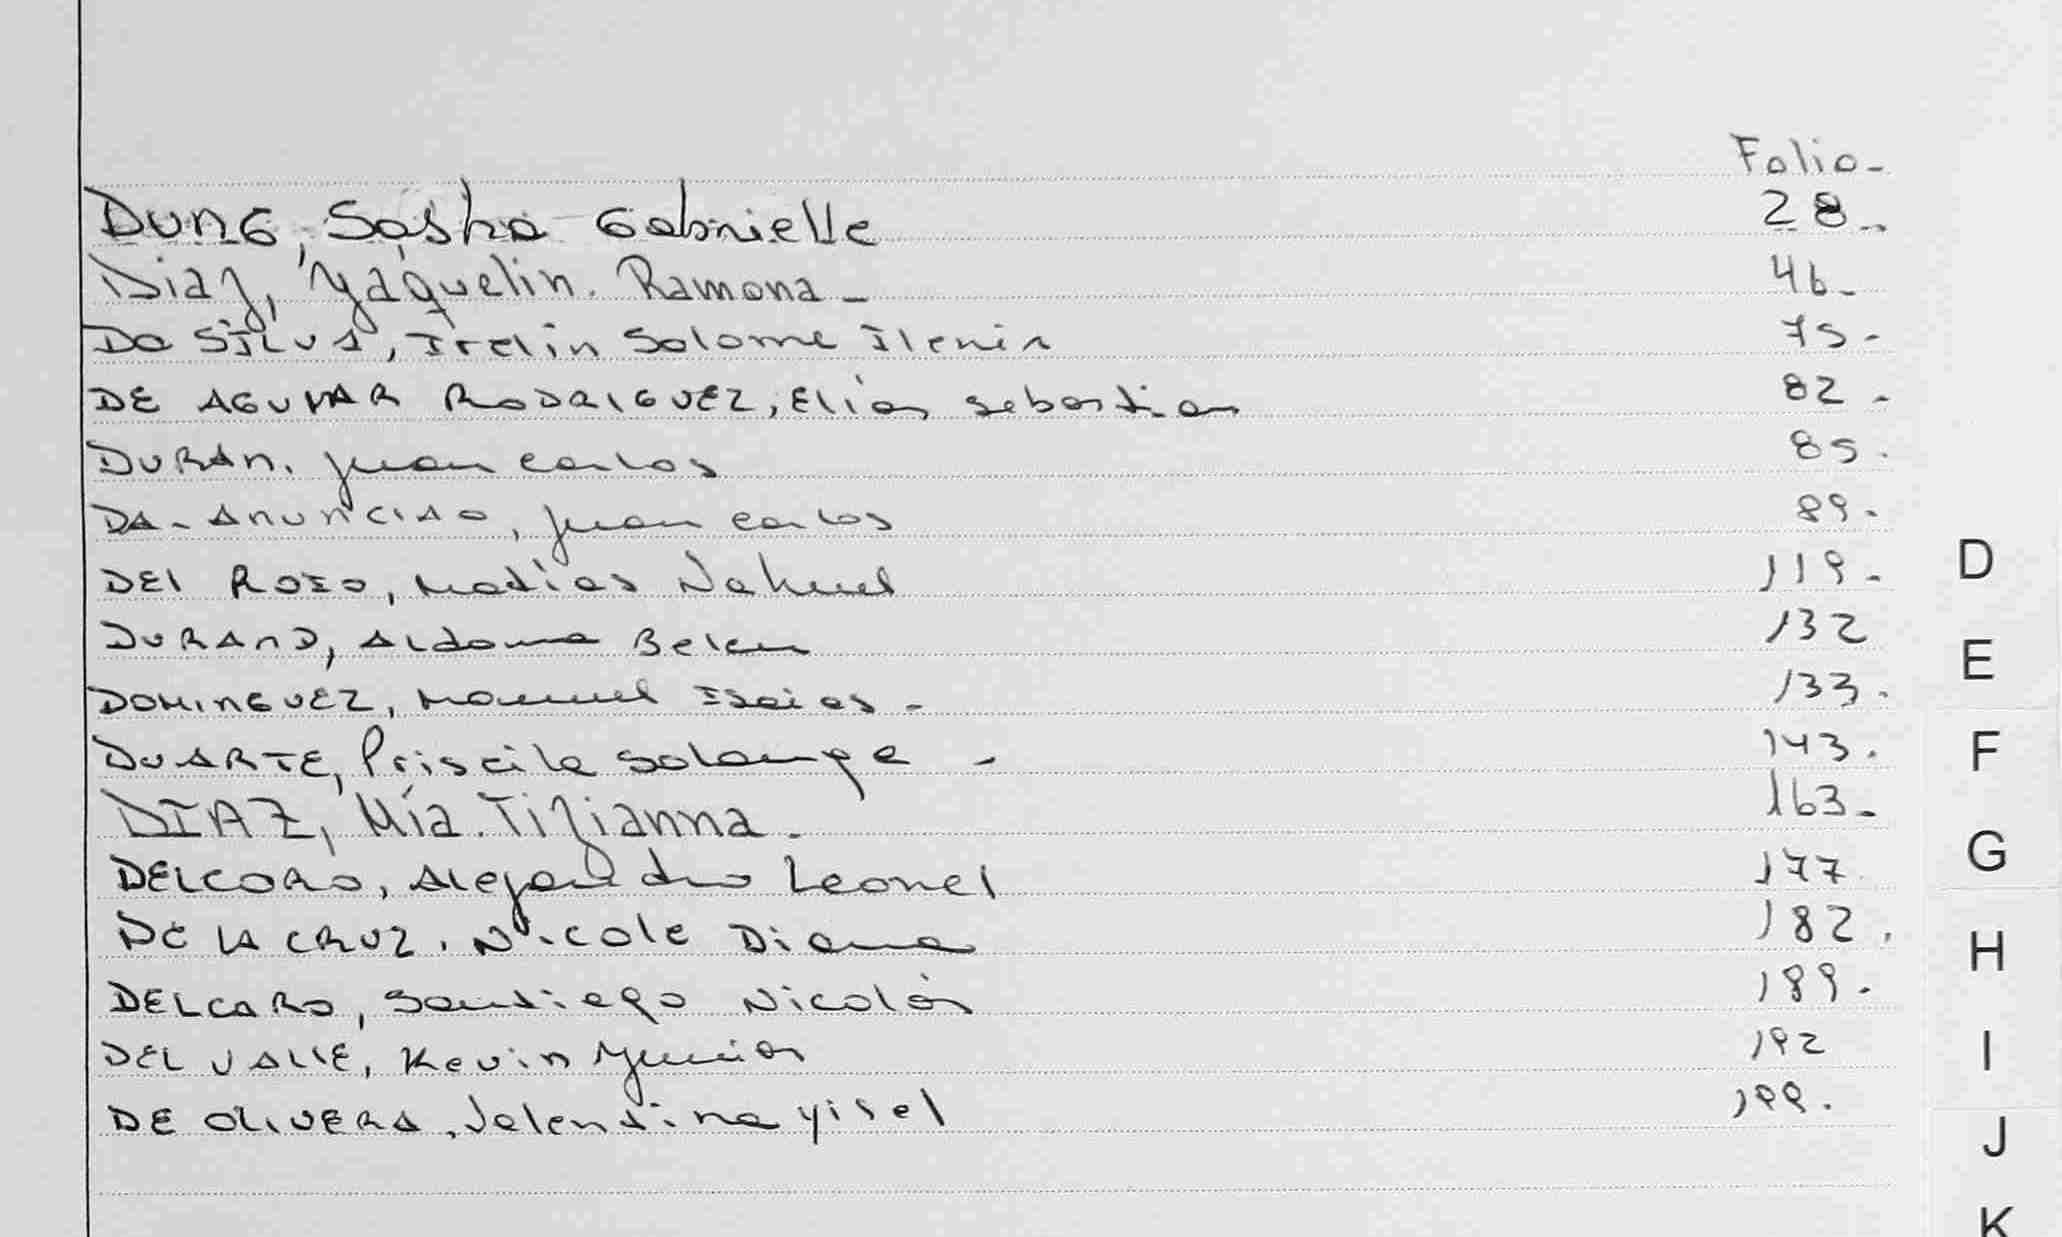 Folio-
DUNG, Sasha Gabrielle 28..
Diaz, Yaquelin. Ramona - 46-
Da SILVA, Irelin Salome Ilenia 75-
DE AGUIAR RODRIGUEZ, Elias Sebastian 82.
DURAN. Juan Carlos 85.
DA-ANUNCIAO, Juan Carlos 89.
DEL ROIO, Matias Nahuel 119.
DURAND, Aldana Belen 132
DOMINGUEZ, Manuel Isaias - 133.
DUARTE, Priscila Solange - 143.
DIAZ, Mía. Tizianna. 163-
DELCORO, Alejandro Leonel 177.
DE LA CRUZ. Nicole Diana 182.
DELCARO, Santiago Nicolás 189.
DEL VALLE, Kevin Yunior 192
DE OLIVERA, Valentina Yisel 199.
D
E
F
G
H
I
J
K